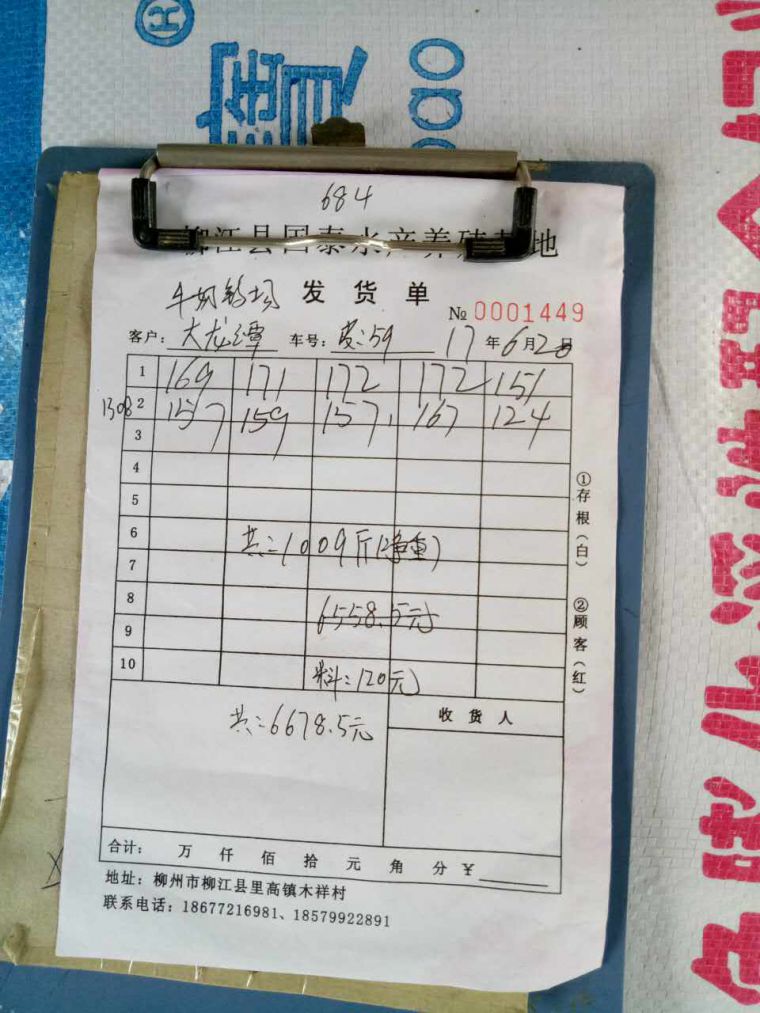 684
柳江县国泰水产养殖基地
发货单
№ 0001449
客户: 大龙潭 车号: 黄:59 17年6月20日
1 169 171 172 172 151
1308 2 157 159 157 167 124
3
4
5
6 共:1009斤(净重)
7
8 6558.5元
9
10 料:120元
收货人
共:6678.5元
合计: 万 仟 佰 拾 元 角 分 ¥
地址:柳州市柳江县里高镇木祥村
联系电话:18677216981、18579922891
①存根(白)
②顾客(红)